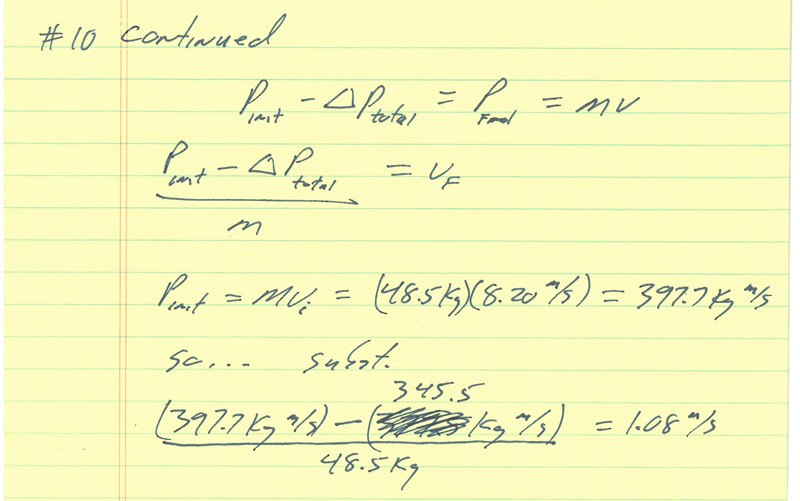 #10 continued
P_init - ΔP_total = P_Final = mv
P_init - ΔP_total = v_F
m
P_init = mv_i = (48.5 Kg)(8.20 m/s) = 397.7 Kg m/s
so... subst.
345.5
(397.7 Kg m/s) - ( Kg m/s) = 1.08 m/s
48.5 Kg